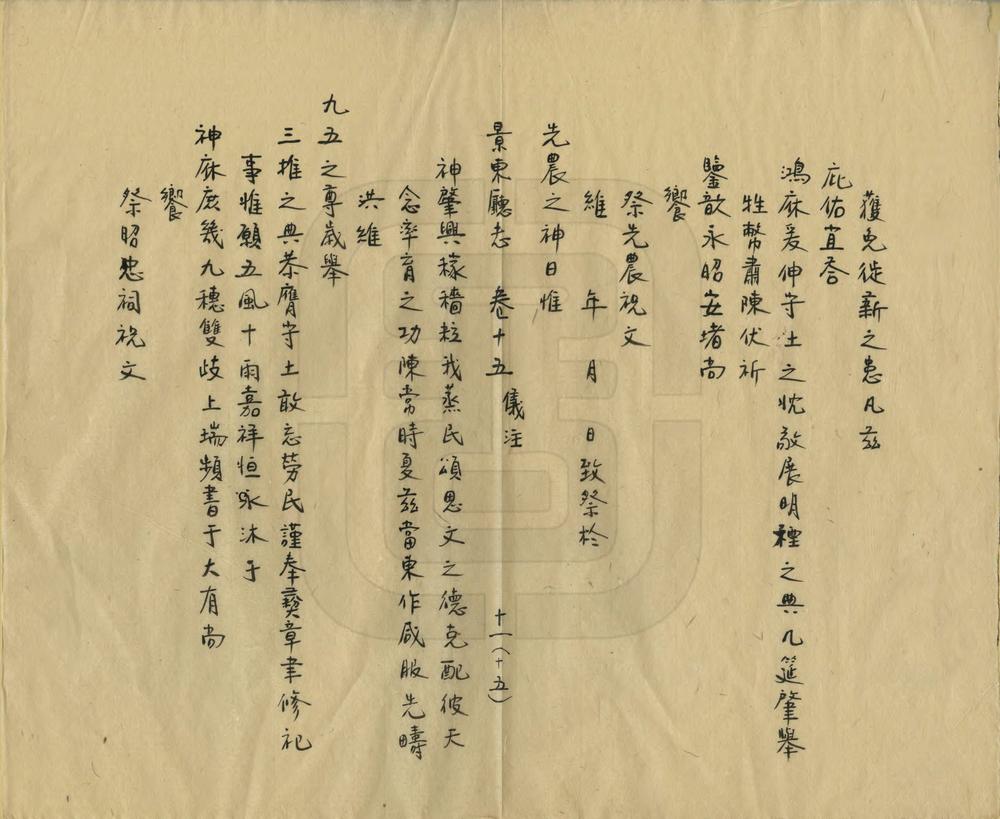 獲免徙薪之患凡兹
庇佑宜荅
鴻庥爰伸守土之忱敬展明禋之典几筵肇舉
牲幣肅陳伏祈
鑒歆永昭安堵尚
饗
祭先農祝文
維 年 月 日致祭於
先農之神曰惟
景東廳志 卷十五 儀注 十一(十五)
神肇興稼穡粒我蒸民頌思文之德克配彼天
念率育之功陳常時夏兹當東作咸服先疇
洪維
九五之尊歲舉
三推之典恭膺守土敢忘勞民謹奉彜章聿修祀
事惟願五風十雨嘉祥恒永沐于
神庥庶幾九穗雙歧上瑞頻書于大有尚
饗
祭昭忠祠祝文